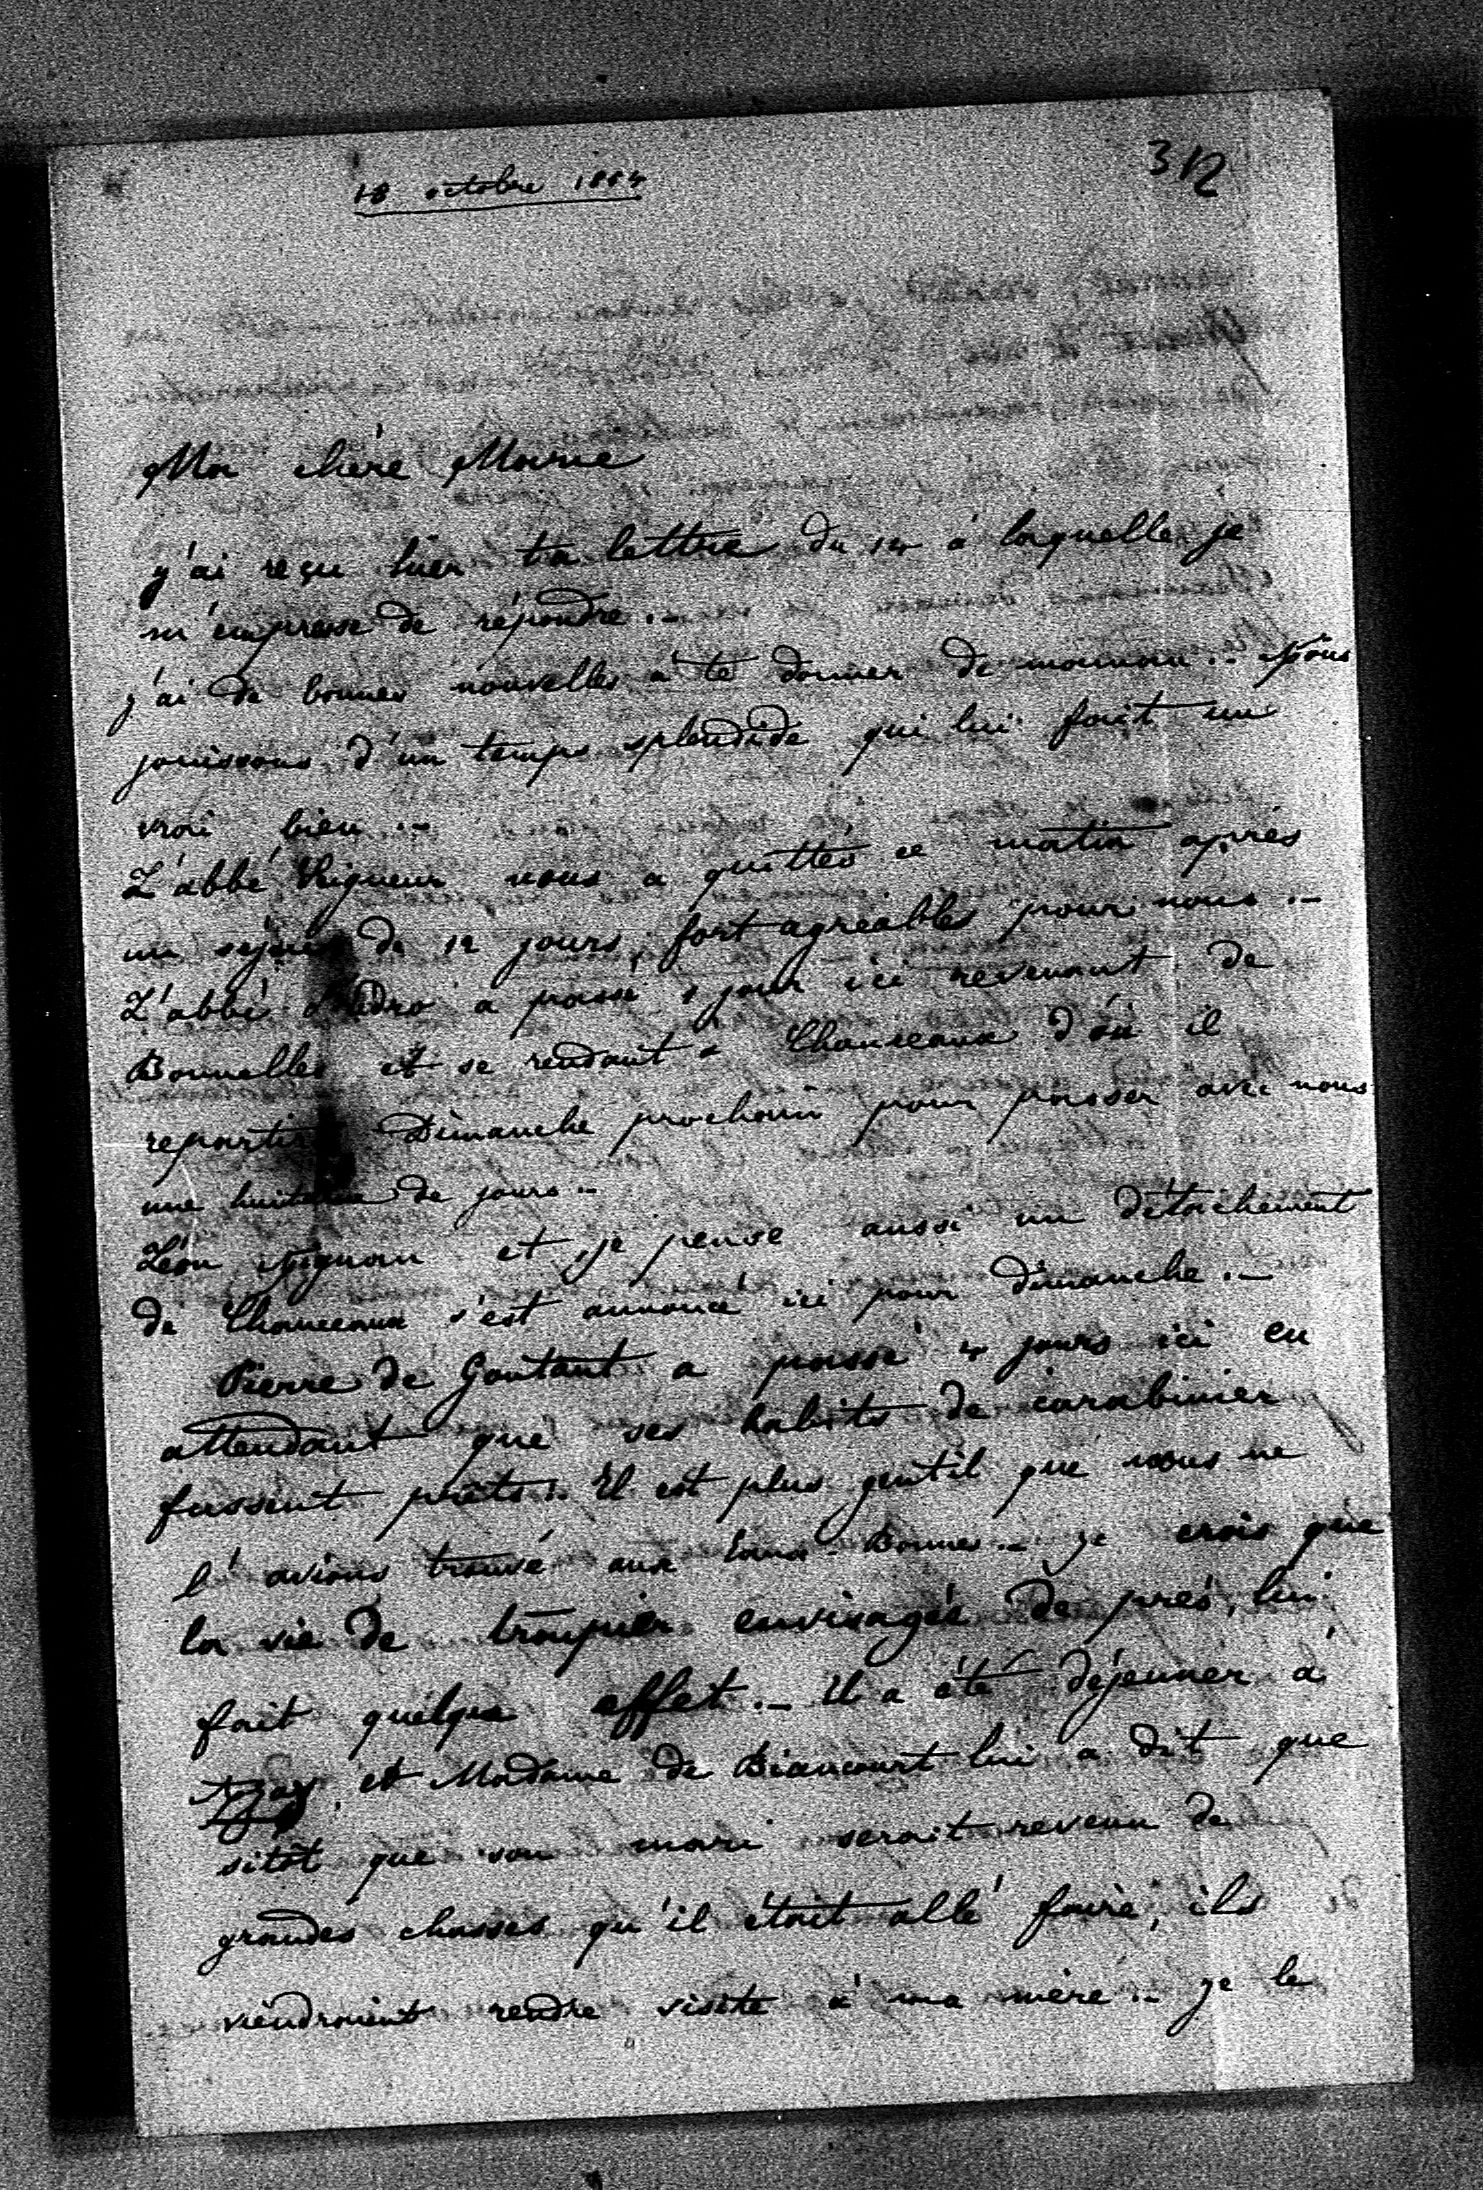 18 octobre 1884
312
Ma chère Marie
j'ai reçu hier ta lettre du 14 à laquelle je
m'empresse de répondre.-
j'ai de bonnes nouvelles à te donner de maman.- Nous
jouissons d'un temps splendide qui lui fait un
vrai bien.-
L'abbé Vigneur nous a quittés ce matin après
un séjour de 12 jours, fort agréables pour nous.-
L'abbé Pedro a passé 1 jour ici revenant de
Bonnelles et se rendant à Chanceaux d'où il
repartira Dimanche prochain pour passer avec nous
une huitaine de jours.-
Léon et je pense aussi un détachement
de Chanceaux s'est annoncé ici pour dimanche.-
Pierre de Gontaut a passé 4 jours ici en
attendant que ses habits de carabinier
fussent prêts.- Il est plus gentil que nous ne
l'avions trouvé aux Eaux-Bonnes.- je crois que
la vie de troupier envisagée de près, lui
fait quelque effet.- il a été déjeuner à
Azay, et Madame de Biancourt lui a dit que
sitôt que son mari serait revenu de
grandes chasses qu'il était allé faire, ils
viendraient rendre visite à ma mère.- je le